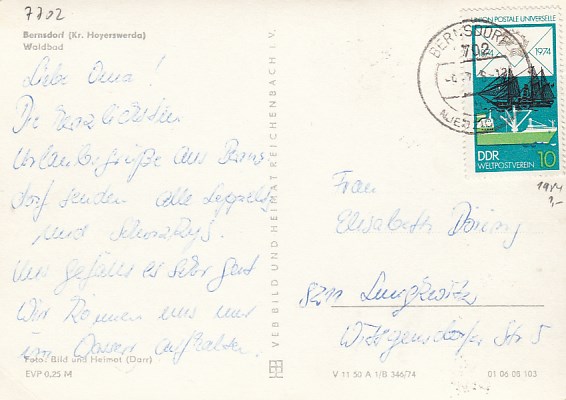 7702
Bernsdorf (Kr. Hoyerswerda)
Waldbad
Liebe Oma!
Die herzlichsten
Urlaubsgrüße aus Berns
dorf senden alle
und
Uns gefällt es sehr gut
Wir können uns nur
im Wasser aufhalten.
Foto: Bild und Heimat (Darr)
EVP 0,25 M
VEB BILD UND HEIMAT REICHENBACH I. V.
BERNSDORF
7702
UNION POSTALE UNIVERSELLE
1974
DDR 10
WELTPOSTVEREIN
Frau
Elisabeth Döring
8211 Lungkwitz
Wittgensdorfer Str 5
V 11 50 A 1/B 346/74
01 06 08 103